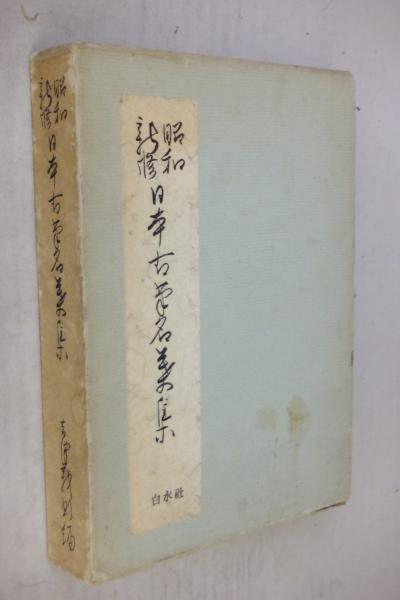 昭和
新修
日本古筆名葉集
白水社
昭和
新修
日本古筆名葉集
吉澤義則編